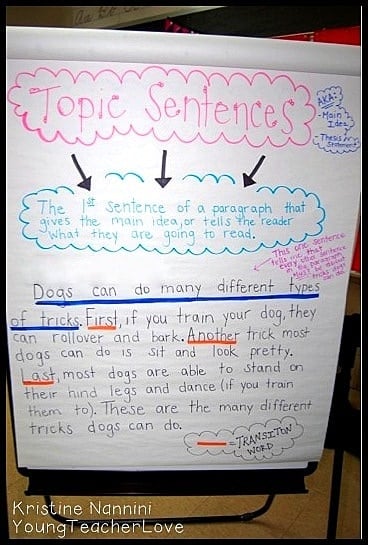 Topic Sentences
AKA:
- Main
Idea
- Thesis
Statement
The 1st sentence of a paragraph that
gives the main idea, or tells the reader
what they are going to read.
This one sentence
tells me that
every other sentence
in the paragraph
must be about
tricks dogs
can do.
Dogs can do many different types
of tricks. First, if you train your dog, they
can rollover and bark. Another trick most
dogs can do is sit and look pretty.
Last, most dogs are able to stand on
their hind legs and dance (if you train
them to). These are the many different
tricks dogs can do.
= TRANSITION
WORD
Kristine Nannini
YoungTeacherLove